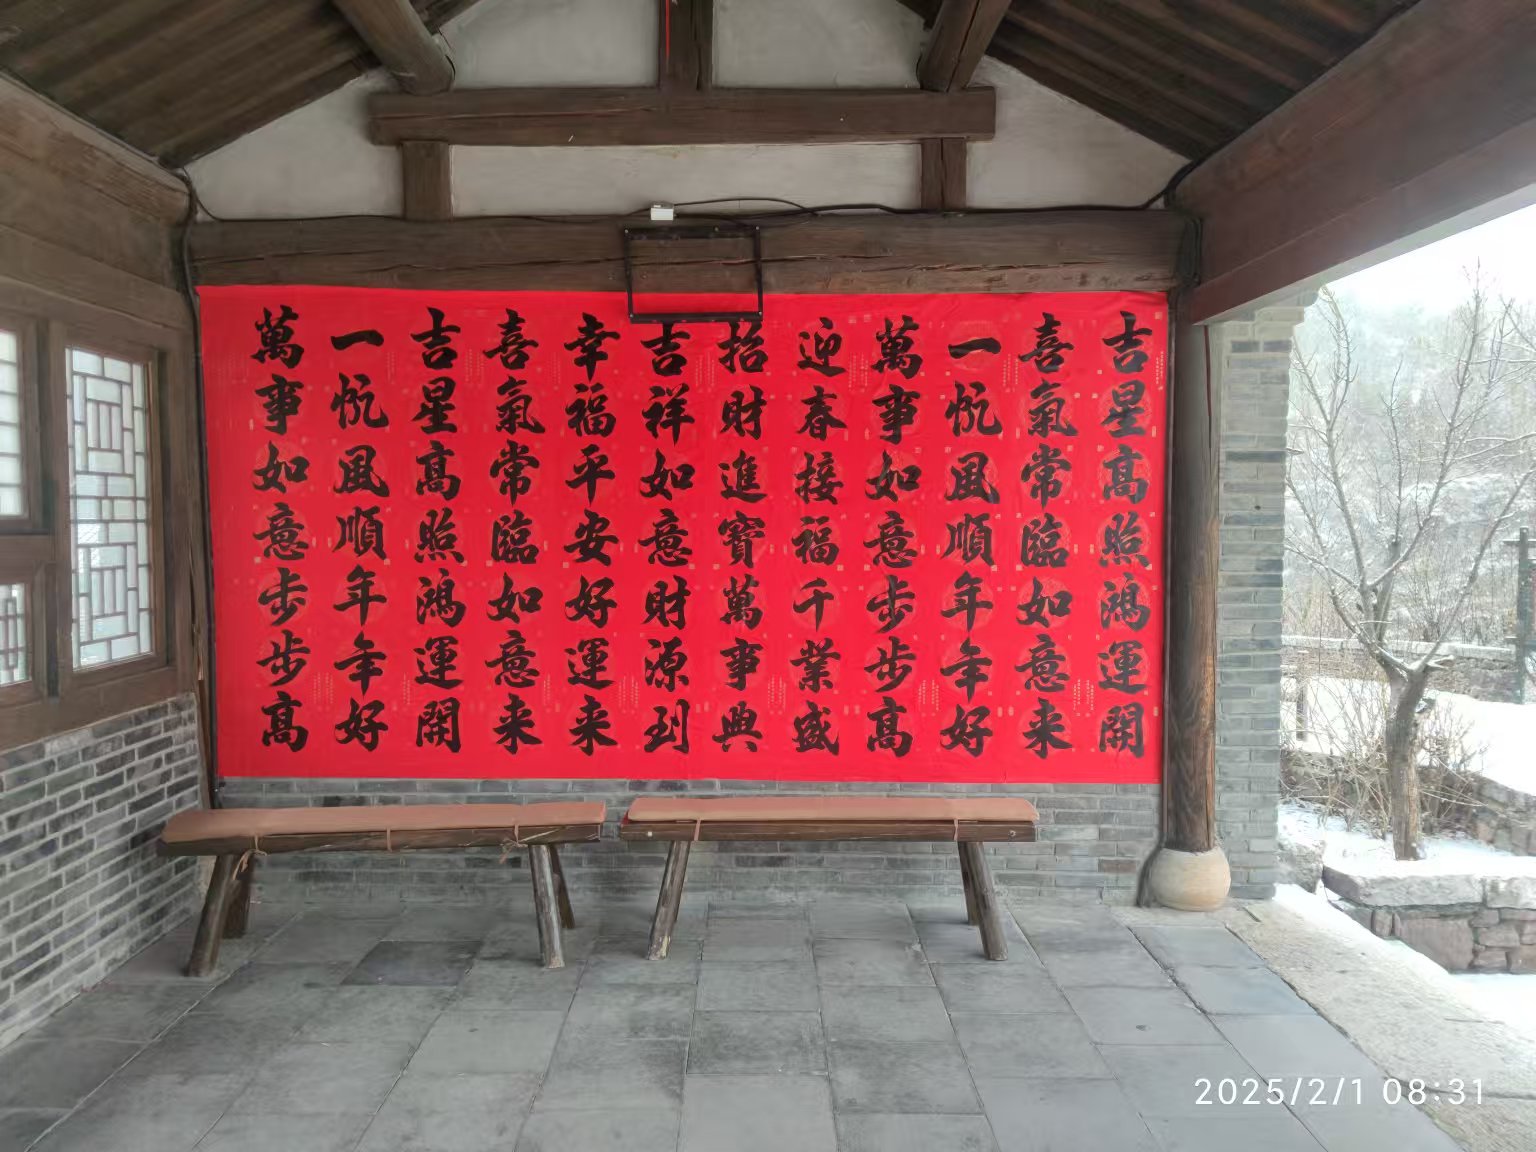 吉星高照鴻運開
喜氣常臨如意来
一帆風順年年好
萬事如意步步高
迎春接福千業盛
招財進寶萬事興
吉祥如意財源到
幸福平安好運来
喜氣常臨如意来
吉星高照鴻運開
一帆風順年年好
萬事如意步步高
2025/2/1 08:31